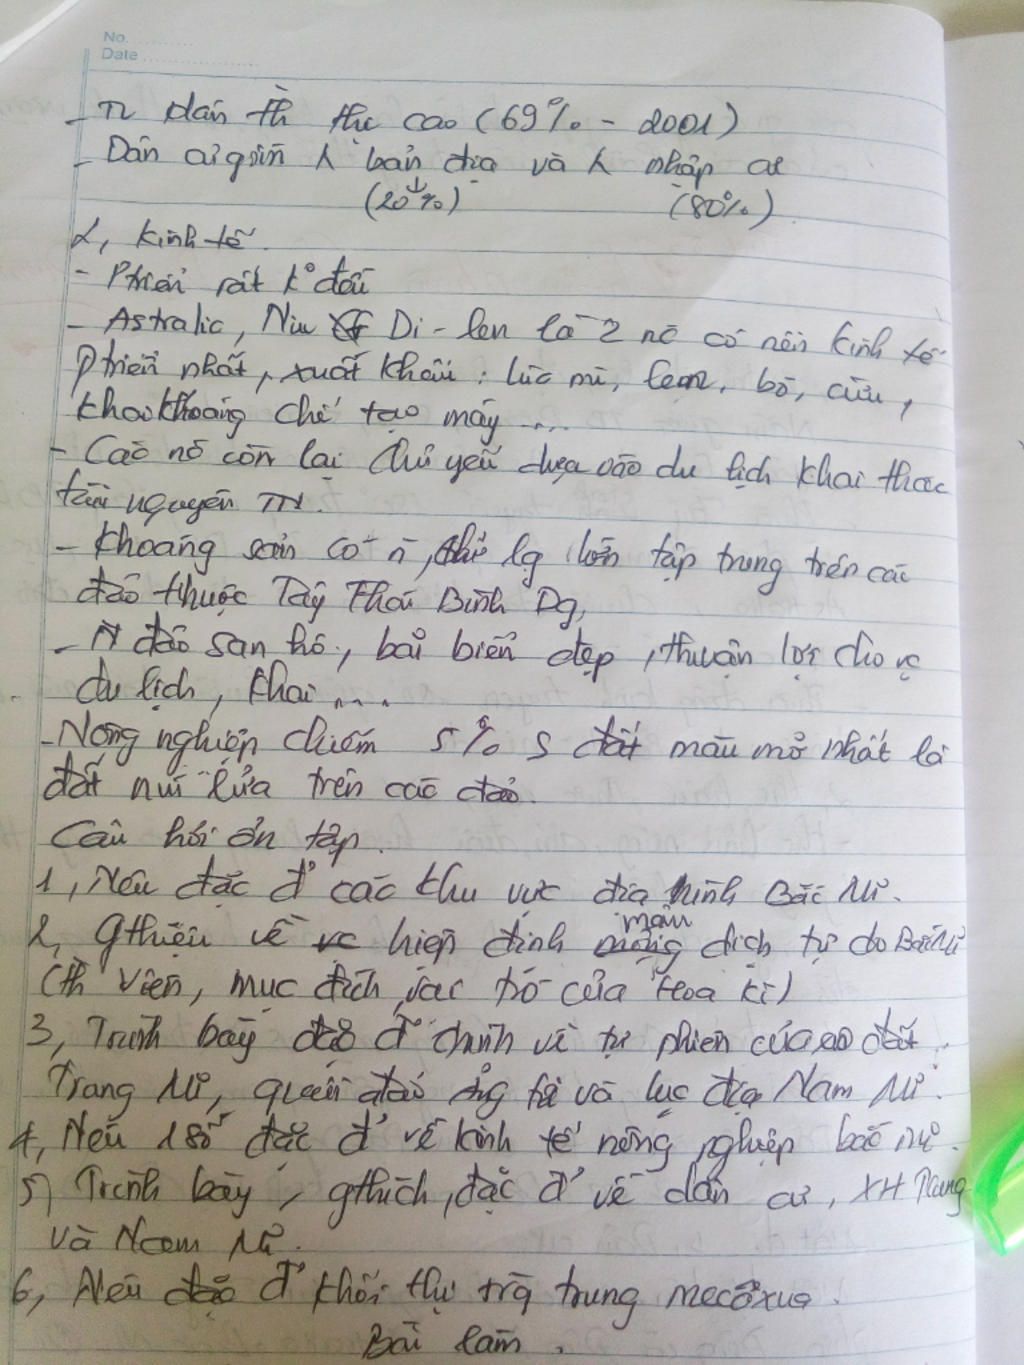 No.
Date
- TL dân th thị cao (69% - 2001)
- Dân cư gồm bản địa và nhập cư
(20%) (80%)
2, Kinh tế
- Ptriển rất k° đều
- Astralia, Niu Di-len là 2 nc có nền kinh tế
ptriển nhất, xuất khẩu: lúa mì, len, bò, cừu,
khai khoáng chế tạo máy ....
- Các nc còn lại chủ yếu dựa vào du lịch khai thác
tài nguyên TN.
- Khoáng sản có lớn tập trung trên các
đảo thuộc Tây Thái Bình Dg,
- N đảo san hô, bãi biển đẹp, thuận lợi cho vc
du lịch, khai ....
- Nông nghiệp chiếm 5% S đất màu mỡ nhất là
đất núi lửa trên các đảo.
Câu hỏi ôn tập.
1, Nêu đặc đ' các khu vực địa hình Bắc Mĩ.
2, Gthiệu về vc hiệp định mậu dịch tự do Bắc Mĩ
(th viên, mục đích, vai trò của Hoa Kì)
3, Trình bày đặc đ' chính về tự nhiên của eo đất
Trung Mĩ, quần đảo Ăng ti và lục địa Nam Mĩ.
4, Nêu 1 số đặc đ' về kinh tế nông nghiệp bắc mĩ.
5, Trình bày, gthích, đặc đ' về dân cư, XH Trung
và Nam Mĩ.
6, Nêu đặc đ' khối thị trg trung mecôxua.
Bài làm.